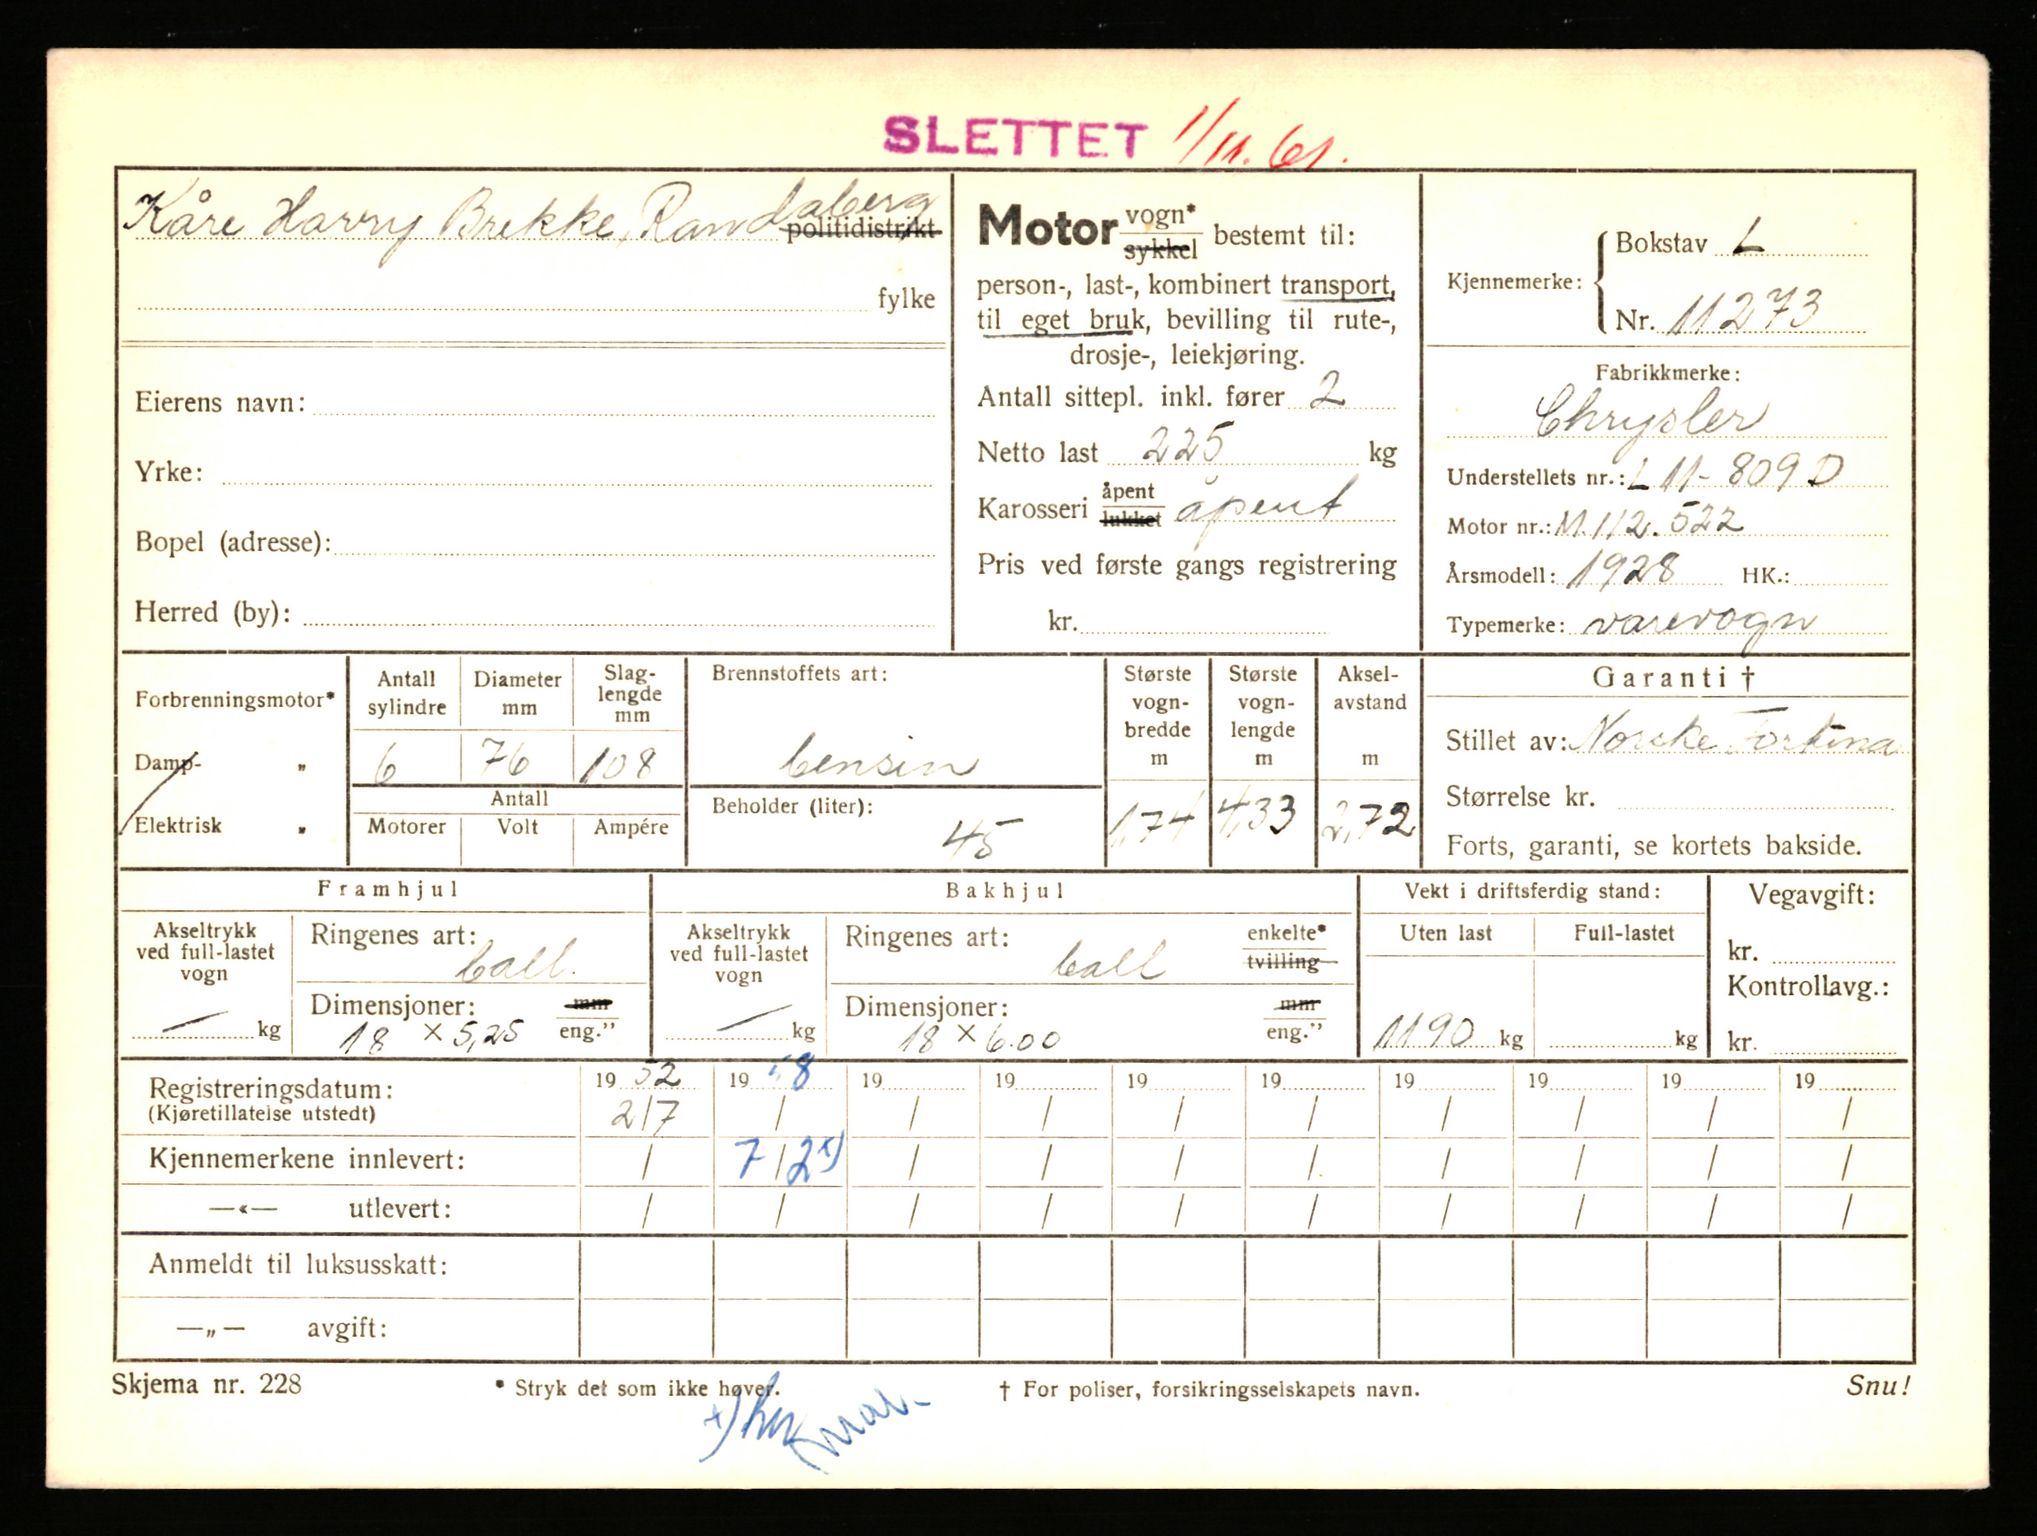 SLETTET 1/11. 61.
Kåre Harry Brekke, Randaberg
politidistrikt
fylke
Eierens navn:
Yrke:
Bopel (adresse):
Herred (by):
Motor vogn* sykkel bestemt til:
person-, last-, kombinert transport,
til eget bruk, bevilling til rute-,
drosje-, leiekjøring.
Antall sittepl. inkl. fører 2
Netto last 225 kg
Karosseri åpent lukket åpent
Pris ved første gangs registrering
kr.
Kjennemerke: Bokstav L
Nr. 11273
Fabrikkmerke:
Chrysler
Understellets nr.: L 11-809 D
Motor nr.: M.112.522
Årsmodell: 1928 HK.:
Typemerke: varevogn
Forbrenningsmotor*
Damp- „
Elektrisk „
Antall sylindre
Diameter mm
Slaglengde mm
6 76 108
Antall
Motorer Volt Ampére
Brennstoffets art:
bensin
Beholder (liter):
45
Største vognbredde m
1,74
Største vognlengde m
4,33
Akselavstand m
2,72
Garanti †
Stillet av: Norske Fortuna
Størrelse kr.
Forts, garanti, se kortets bakside.
Framhjul
Akseltrykk
ved full-lastet
vogn
— kg
Ringenes art:
ball.
Dimensjoner: mm
18 × 5,25 eng.”
Bakhjul
Akseltrykk
ved full-lastet
vogn
— kg
Ringenes art: enkelte*
ball tvilling
Dimensjoner: mm
18 × 6.00 eng.”
Vekt i driftsferdig stand:
Uten last Full-lastet
1190 kg kg
Vegavgift:
kr.
Kontrollavg.:
kr.
Registreringsdatum: 19 52 19 58 19 19 19 19 19 19 19 19
(Kjøretillatelse utstedt) 2/7 / / / / / / / / /
Kjennemerkene innlevert: / 7/2 x) / / / / / / / /
—«— utlevert: / / / / / / / / / /
Anmeldt til luksusskatt:
—„— avgift:
Skjema nr. 228 * Stryk det som ikke høver. † For poliser, forsikringsselskapets navn. Snu!